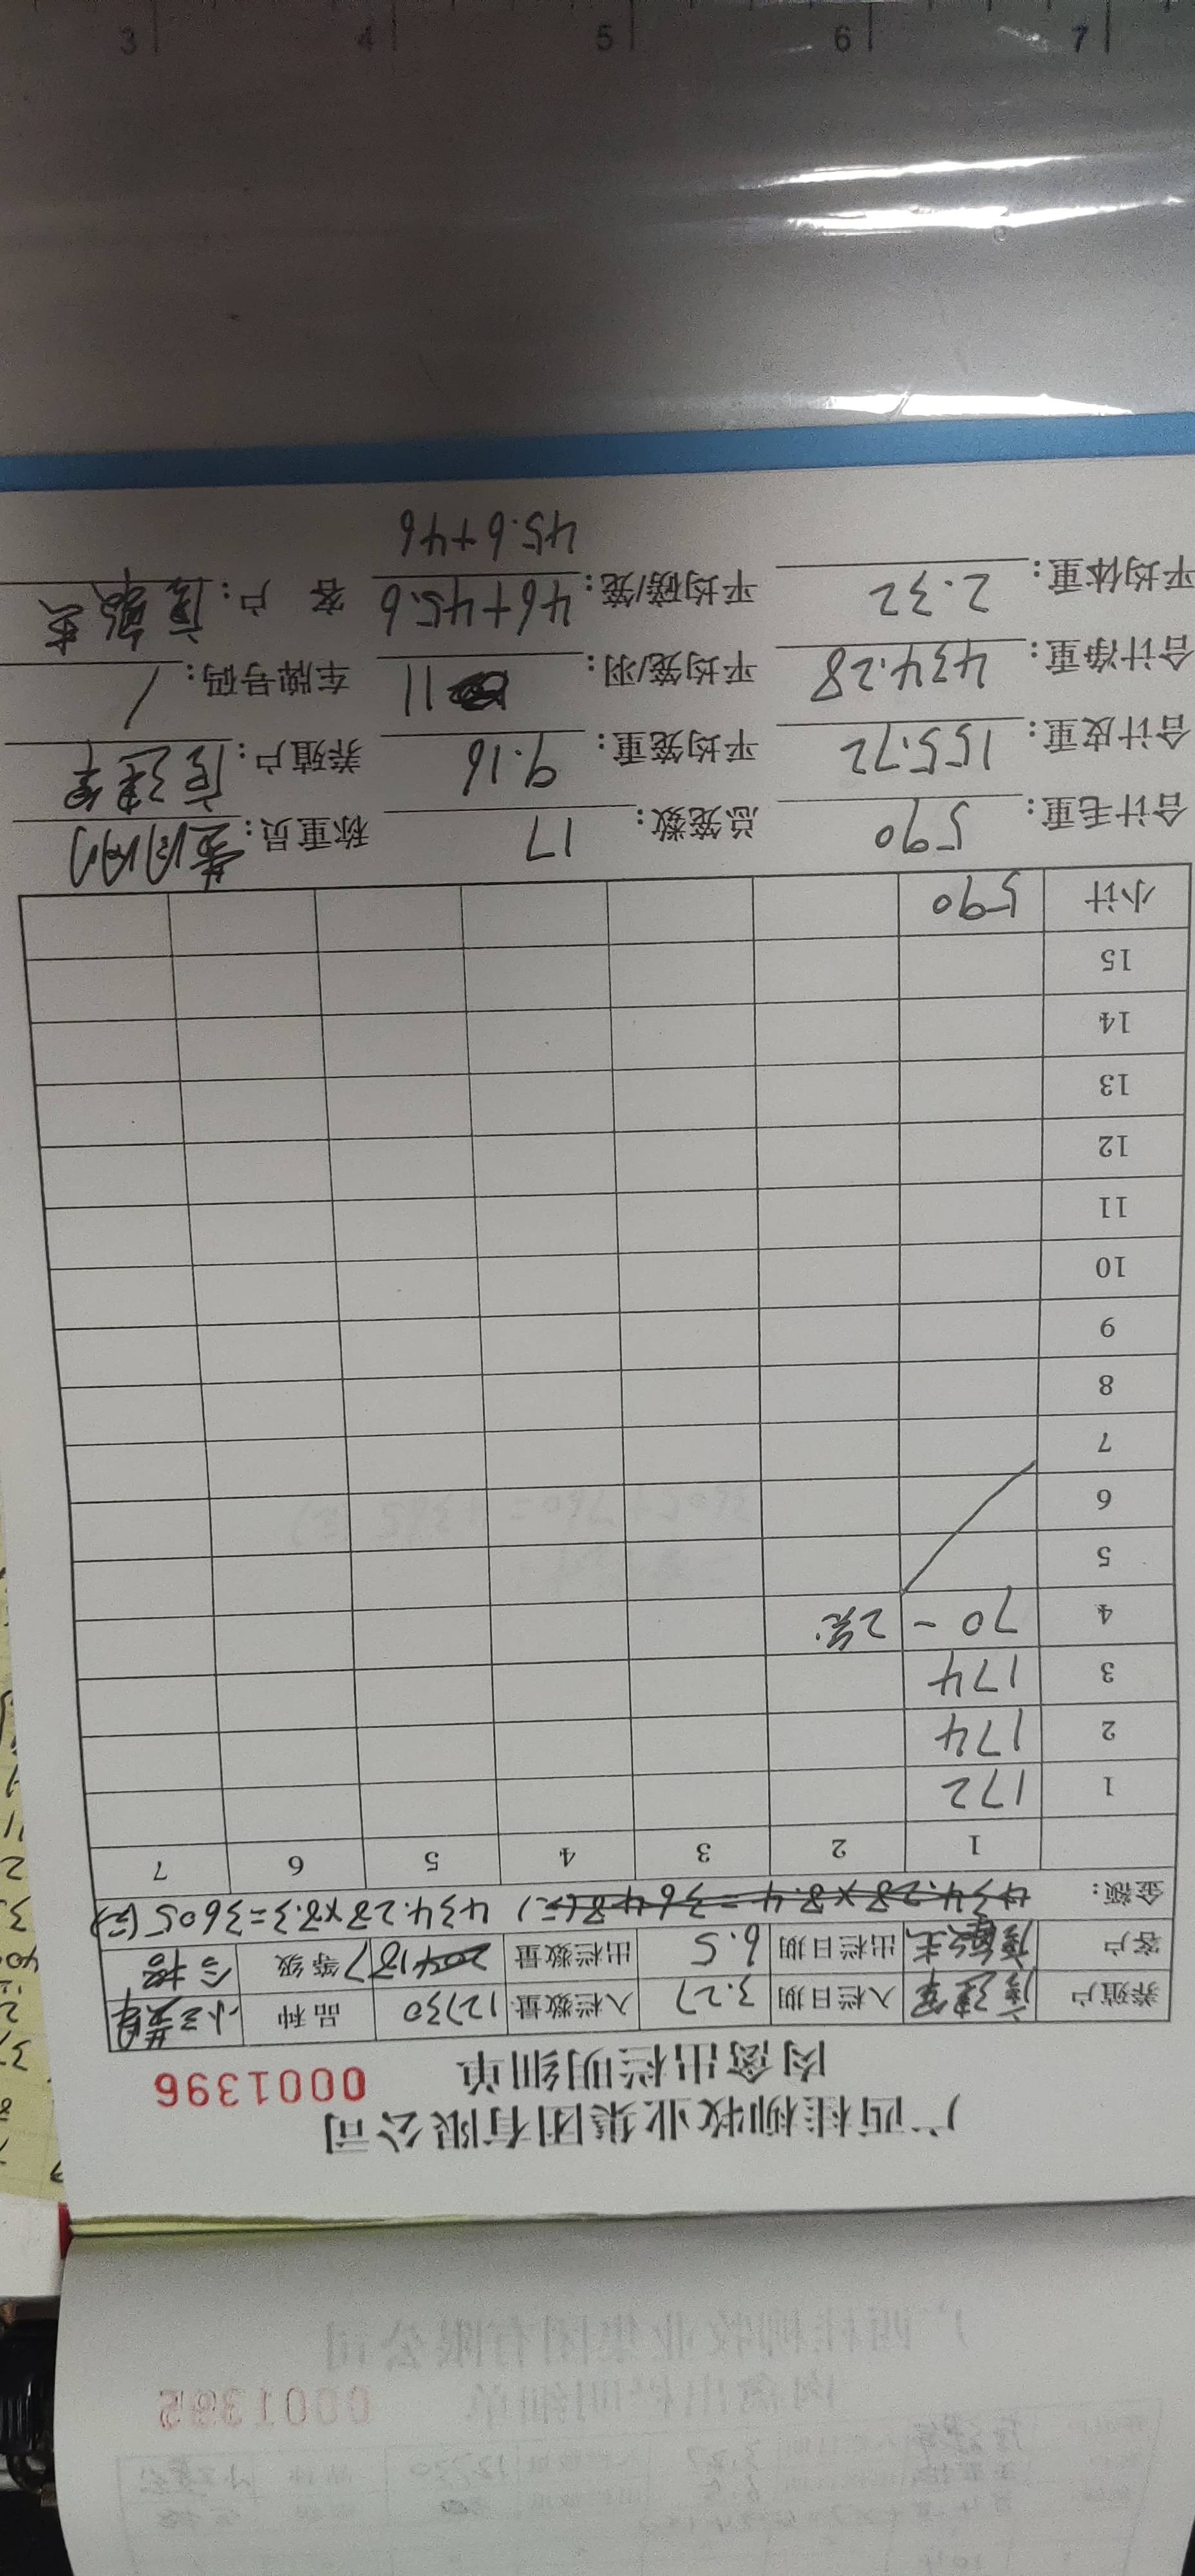 广西桂柳牧业集团有限公司
肉禽出栏明细单 0001396
养殖户 入栏日期 3.27 入栏数量 12730 品种 小三黄
客户 出栏日期 6.5 出栏数量 187 等级 合格
金额: 434.28×8.4=3648(元) 434.28×8.3=3605(元)
1 2 3 4 5 6 7
1 172
2 174
3 174
4 70 - 2笼
5
6
7
8
9
10
11
12
13
14
15
小计 590
合计毛重: 590 总笼数: 17 称重员:
合计皮重: 155.72 平均笼重: 9.16 养殖户:
合计净重: 434.28 平均笼/羽: 11 车牌号码: /
平均体重: 2.32 平均磅/笼: 46+45.6 客户:
45.6+46
3 4 5 6 7